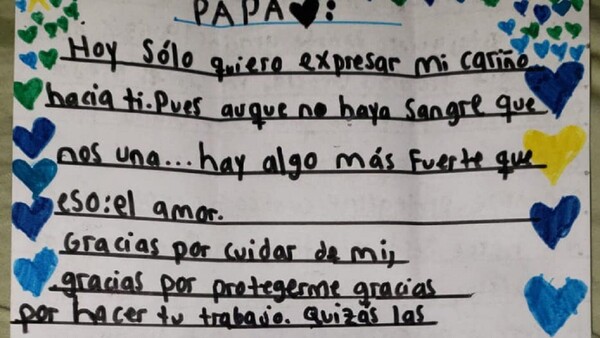 PAPA♥:
Hoy sólo quiero expresar mi cariño
hacia ti. Pues auque no haya sangre que
nos una... hay algo más fuerte que
eso: el amor.
Gracias por cuidar de mi,
gracias por protegerme gracias
por hacer tu trabajo. Quizás las